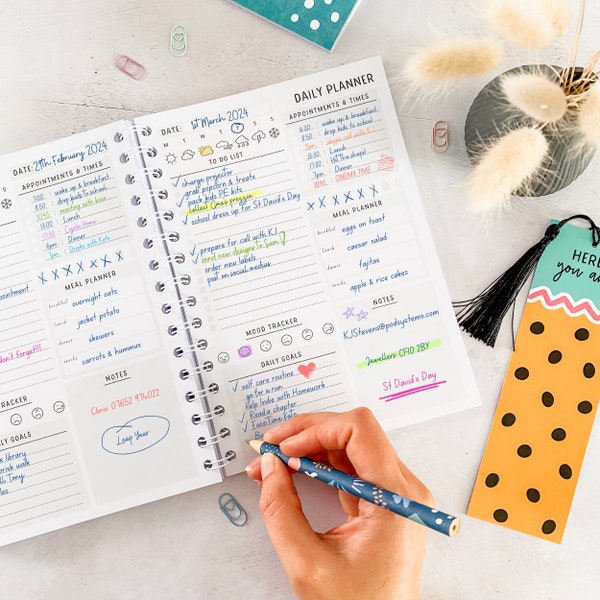 DATE: 29th February 2024
APPOINTMENTS & TIMES
7:00 : wake up & breakfast
8:50 : drop kids to school
10:45 : meeting with boss
: Lunch
: Cyclin Home
: Dinner
: Drinks with Kate
MEAL PLANNER
breakfast overnight oats
lunch jacket potato
dinner skewers
snacks carrots & hummus
NOTES
Chris 07652 974022
Leap Year
don't forget!!!
TRACKER
GOALS
library
walk
Tony
DATE: 1st March 2024
M T W T F S S
TO DO LIST
charge projector
grab popcorn & treats
pack kids PE kits
school dress up for St David's Day
prepare for call with KJ
send new designs to Sam
order new labels
post on social medias
MOOD TRACKER
DAILY GOALS
self care routine
go for a run
help Indie with Homework
Read a chapter
DAILY PLANNER
APPOINTMENTS & TIMES
: wake up & breakfast
: drop kids to school
: Lunch
: Dinner
: CINEMA TIME
MEAL PLANNER
breakfast eggs on toast
lunch caesar salad
dinner fajitas
snacks apple & rice cakes
NOTES
KJStevens@podsystems.com
Jewellers: CF10 2BY
St David's Day
HERE
you a